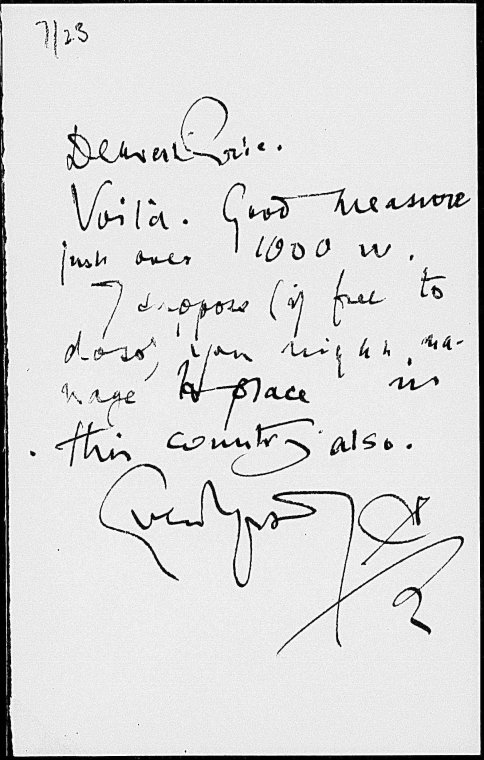 7/23
Dearest
Voilà. Good measure
just over 1000 w.
I suppose (if free to
do so) you might ma-
nage to place in
this country also.